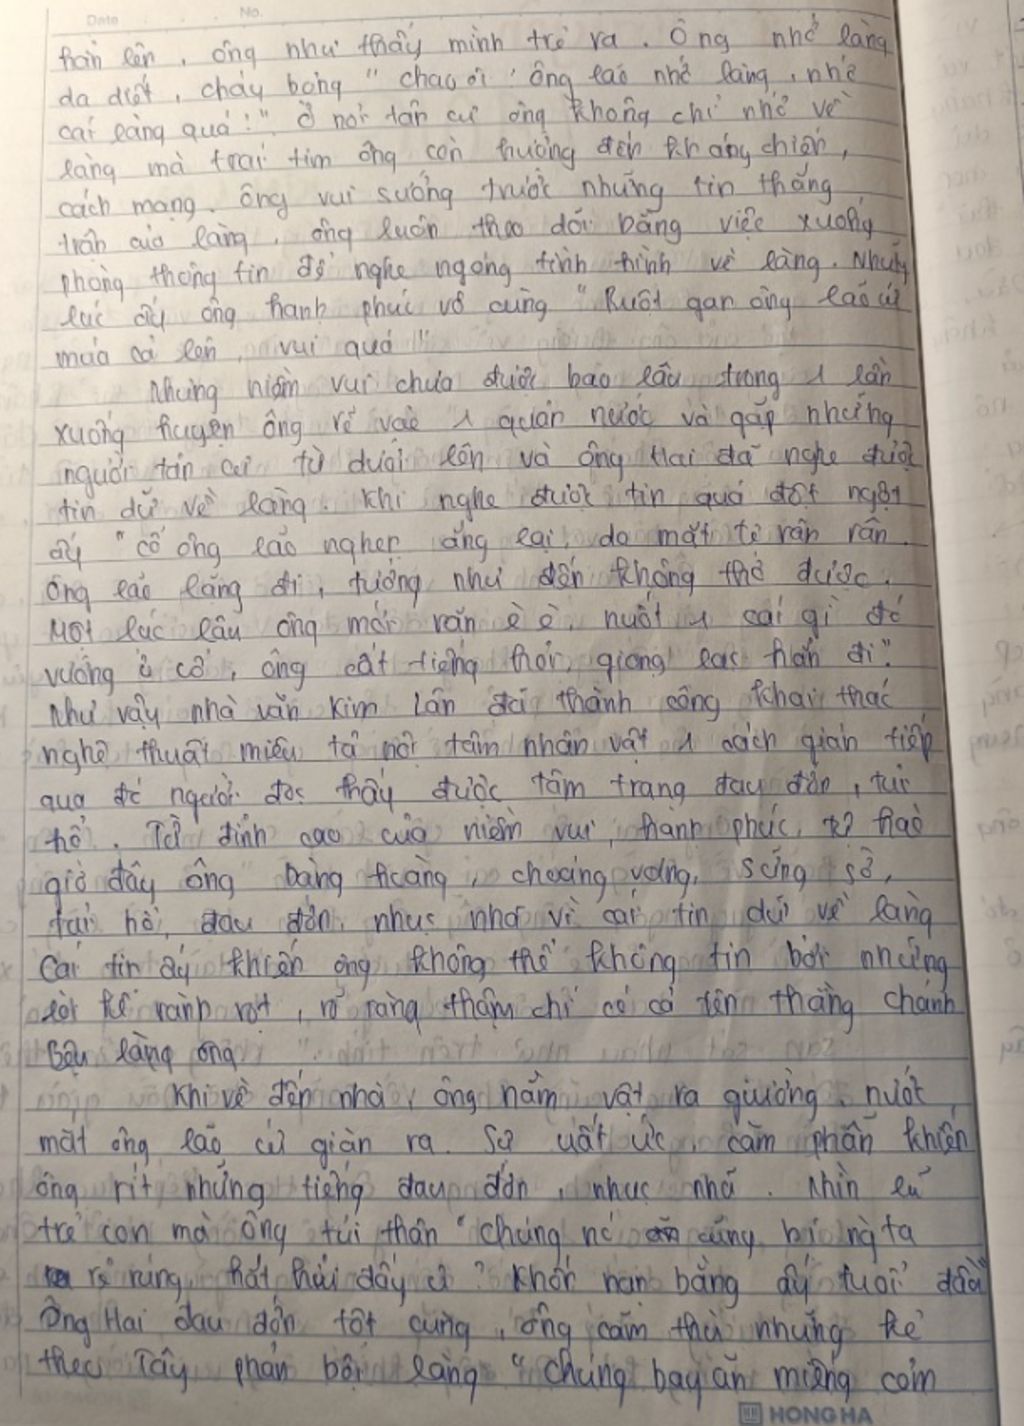 Date No.
hẳn lên, ông như thấy mình trẻ ra. Ông nhớ làng
da diết, cháy bỏng "chao ôi! ông lão nhớ làng, nhớ
cái làng quá!". Ở nơi tản cư ông không chỉ nhớ về
làng mà trái tim ông còn hướng đến kháng chiến,
cách mạng. ông vui sướng trước những tin thắng
trận của làng, ông luôn theo dõi bằng việc xuống
phòng thông tin để nghe ngóng tình hình về làng. Những
lúc ấy ông hạnh phúc vô cùng "Ruột gan ông lão cứ
múa cả lên, vui quá!"
Nhưng niềm vui chưa được bao lâu trong 1 lần
xuống huyện ông rẽ vào 1 quán nước và gặp những
người tản cư từ dưới lên và ông Hai đã nghe được
tin dữ về làng. Khi nghe được tin quá đột ngột
ấy "cổ ông lão nghẹn ắng lại, da mặt tê rân rân.
ông lão lặng đi, tưởng như đến không thở được.
Một lúc lâu ông mới rặn è è, nuốt 1 cái gì đó
vướng ở cổ, ông cất tiếng hỏi, giọng lạc hẳn đi".
Như vậy nhà văn Kim Lân đã thành công khai thác
nghệ thuật miêu tả nội tâm nhân vật 1 cách gián tiếp
qua đó người đọc thấy được tâm trạng đau đớn, tủi
hổ. Từ đỉnh cao của niềm vui, hạnh phúc, tự hào
giờ đây ông bàng hoàng, choáng váng, sững sờ,
tái hồ, đau đớn, nhục nhã vì cái tin dữ về làng
Cái tin ấy khiến ông không thể không tin bởi những
lời kể rành rọt, rõ ràng thậm chí có cả tên thằng chánh
Bệu làng ông
Khi về đến nhà, ông nằm vật ra giường, nước
mắt ông lão cứ giàn ra. Sự uất ức, căm phẫn khiến
ông rít những tiếng đau đớn, nhục nhã. Nhìn lũ
trẻ con mà ông tủi thân "chúng nó cũng bị người ta
rẻ rúng, hắt hủi đấy ư? Khốn nạn bằng ấy tuổi đầu"
Ông Hai đau đớn tột cùng, ông căm thù những kẻ
theo Tây phản bội làng "chúng bay ăn miếng cơm
HONG HA